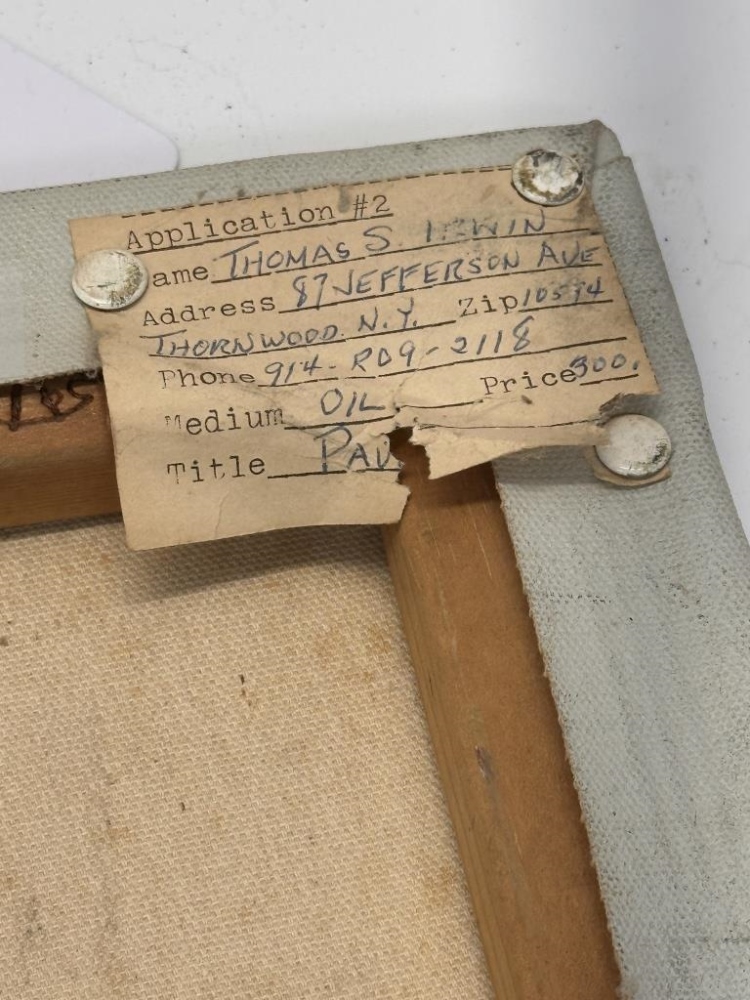 Application #2
ame THOMAS S. IRWIN
Address 87 JEFFERSON AVE
THORNWOOD. N.Y. Zip 10594
Phone 914-RO9-2118
Medium OIL Price 300.
Title PAU